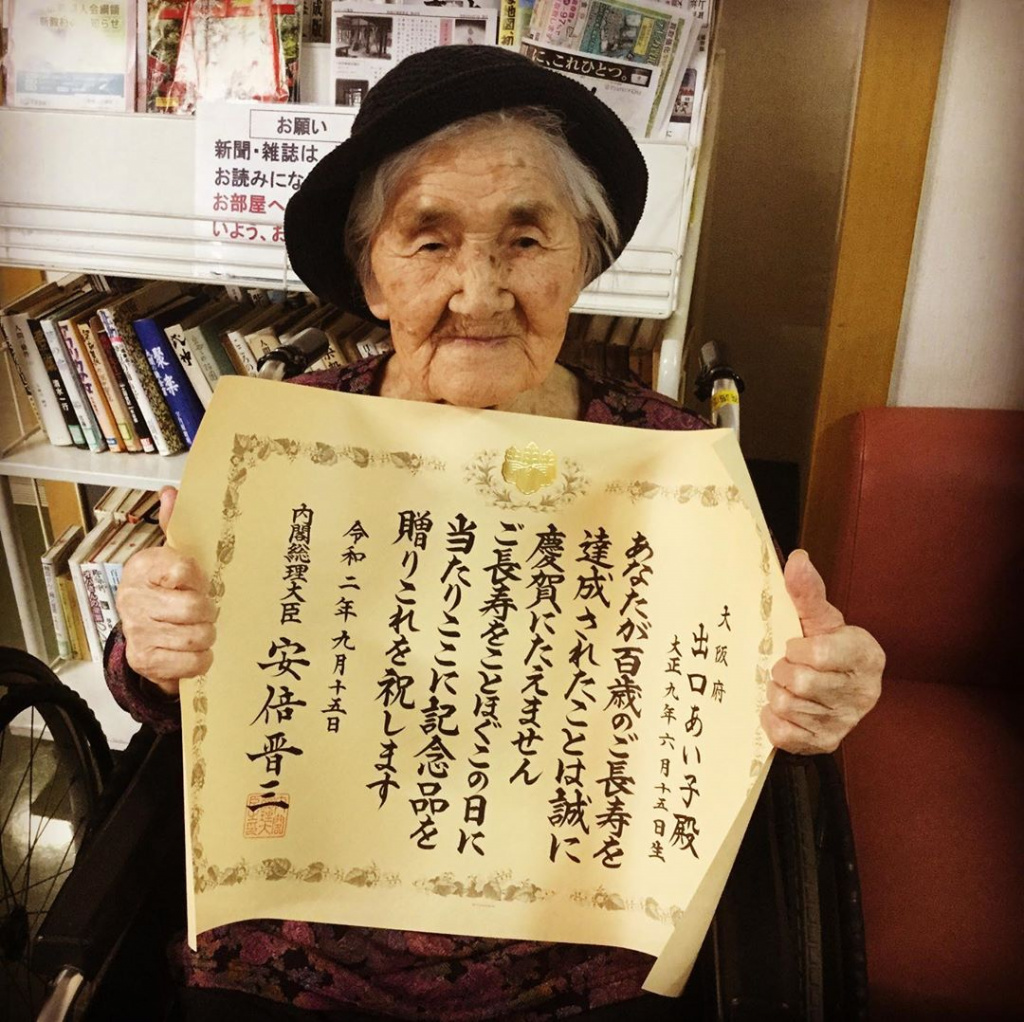 お願い
新聞・雑誌は
お読みにな
お部屋へ
いよう、お
に、これひとつ。
大阪府
出口あい子殿
大正九年六月十五日生
あなたが百歳のご長寿を
達成されたことは誠に
慶賀にたえません
ご長寿をことほぐこの日に
当たりここに記念品を
贈りこれを祝します
令和二年九月十五日
内閣総理大臣 安倍晋三